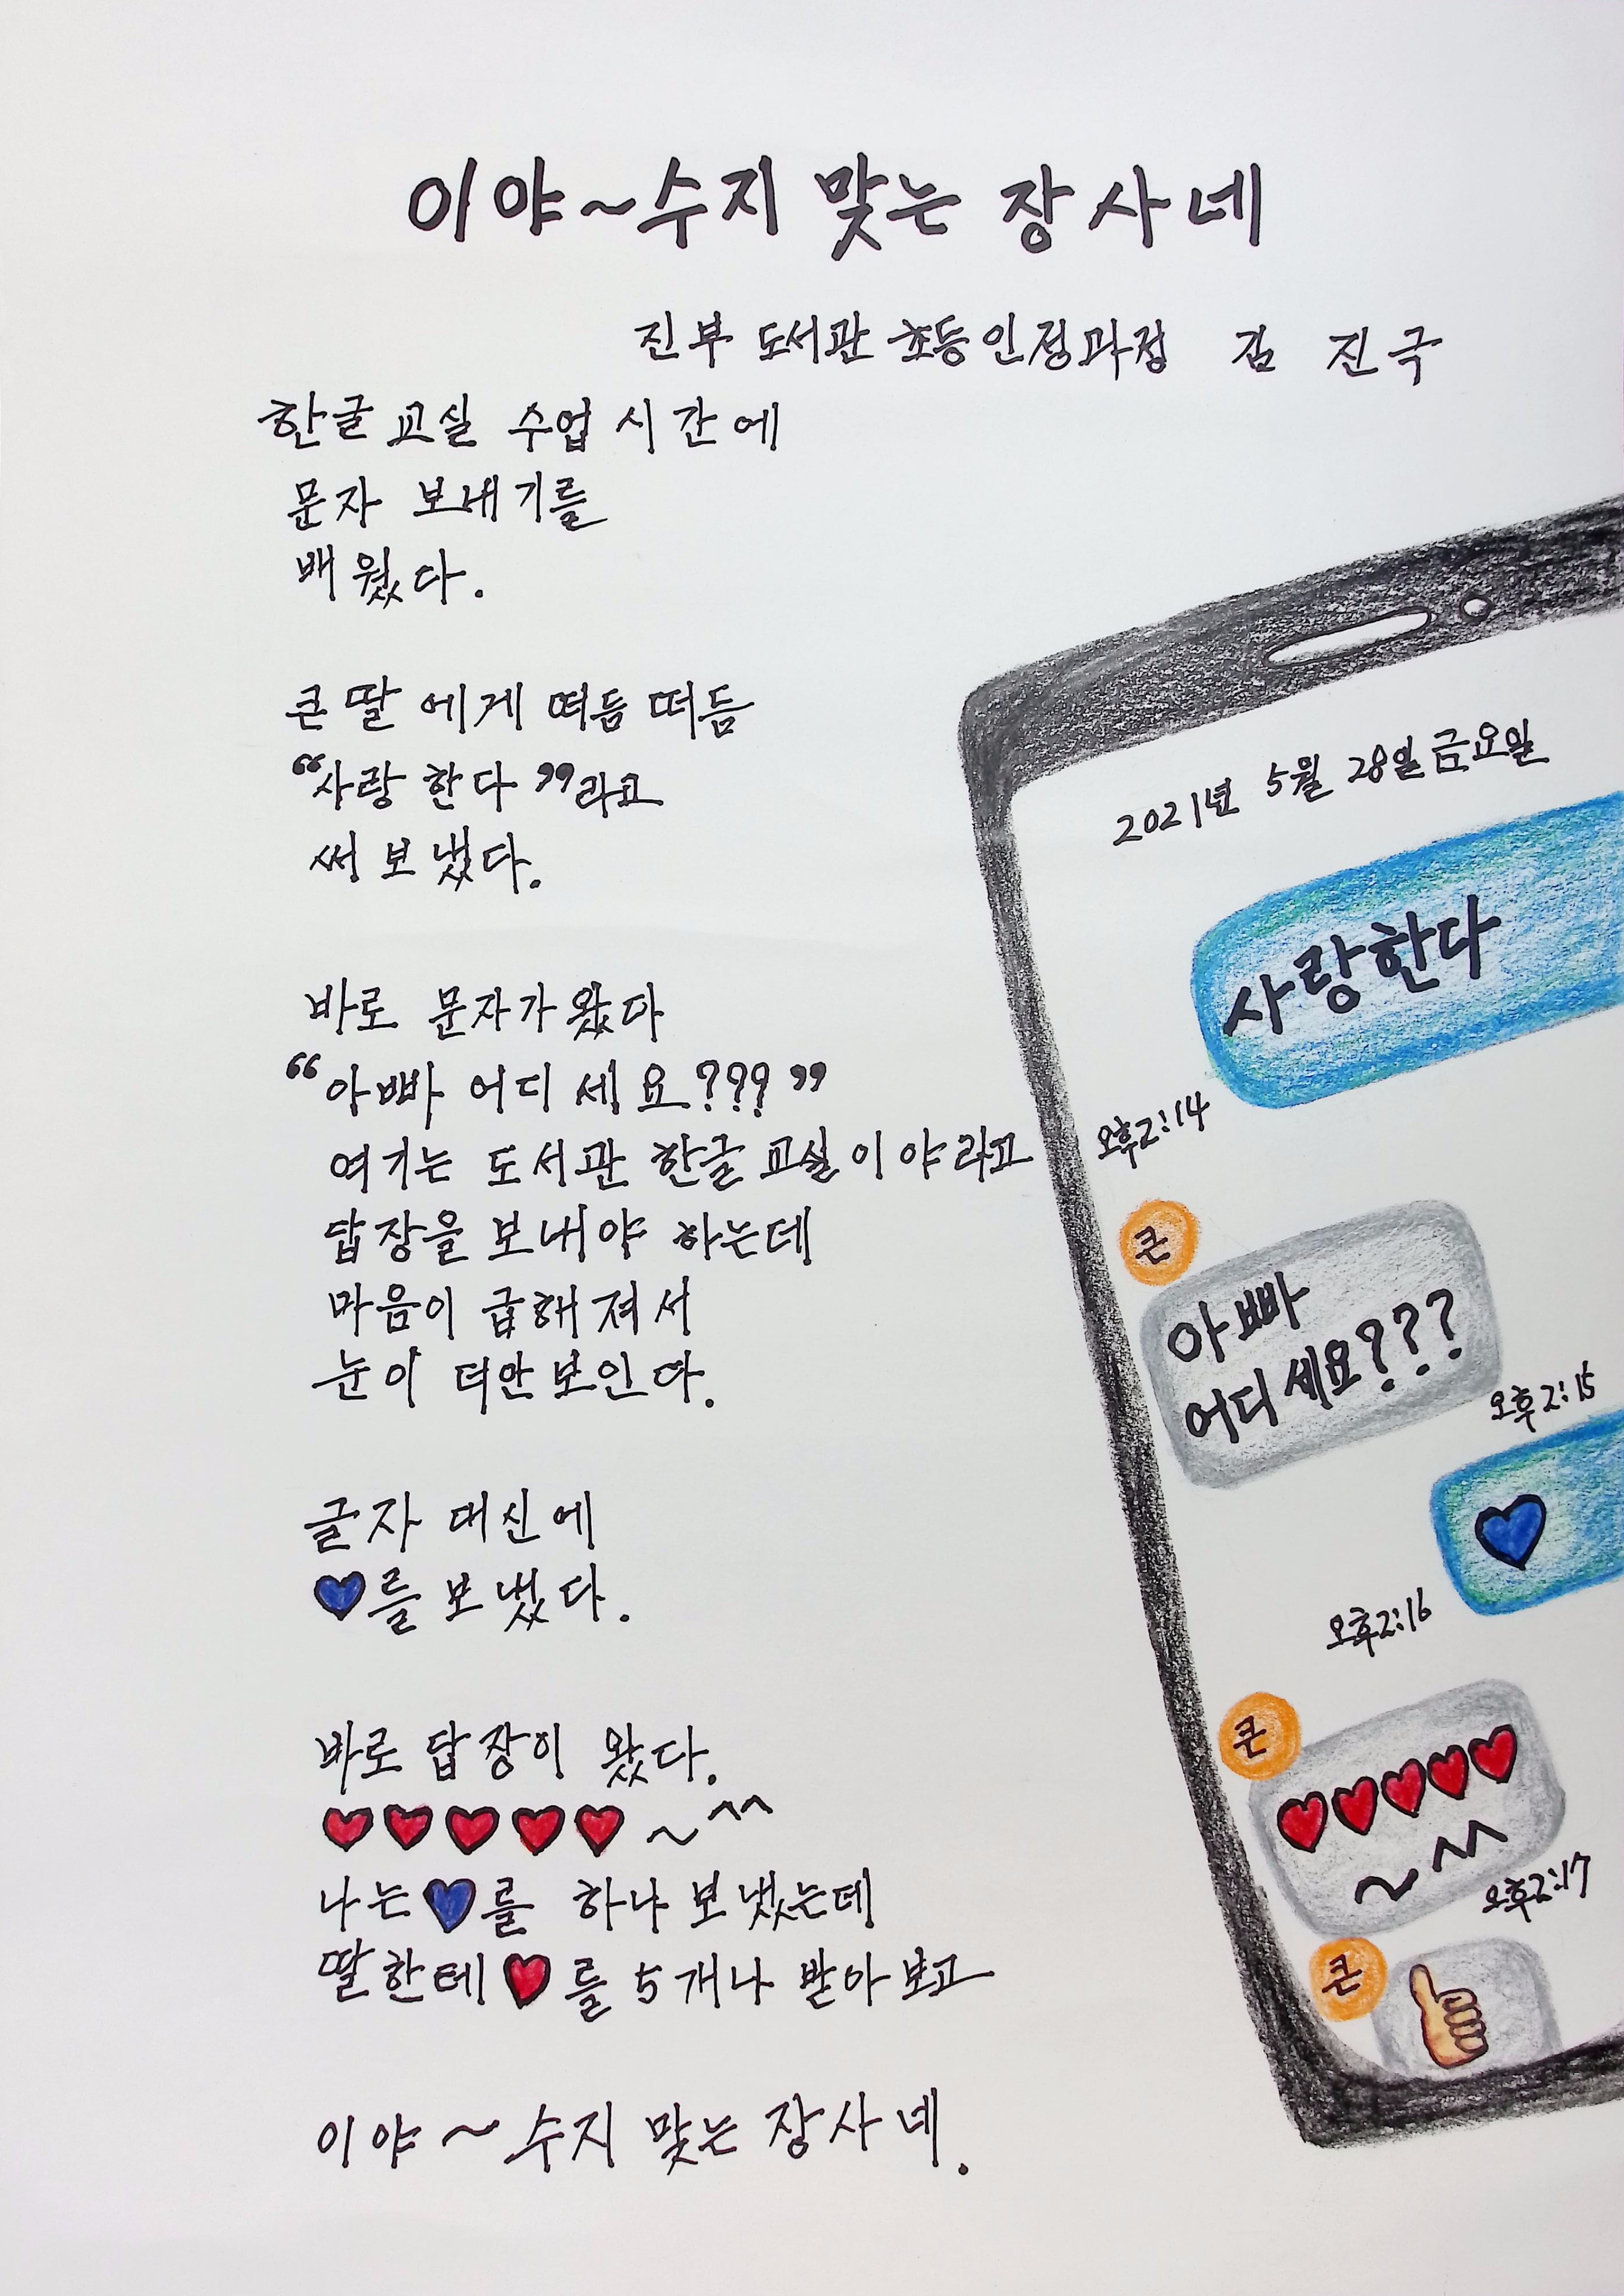 이야~수지 맞는 장사네
진부 도서관 초등인정과정 김 진국
한글 교실 수업 시간에
문자 보내기를
배웠다.
큰딸 에게 떠듬 떠듬
“사랑 한다”라고
써 보냈다.
바로 문자가 왔다
“아빠 어디 세요???”
여기는 도서관 한글 교실 이야 라고
답장을 보내야 하는데
마음이 급해져서
눈이 더안 보인다.
글자 대신에
💙를 보냈다.
바로 답장이 왔다.
❤❤❤❤❤~^^
나는 💙를 하나 보냈는데
딸한테 ❤를 5개나 받아보고
이야~수지 맞는 장사네.
2021년 5월 28일 금요일
사랑한다
오후2:14
큰
아빠
어디세요???
오후2:15
💙
오후2:16
큰
❤❤❤❤❤
~^^
오후2:17
큰
👍